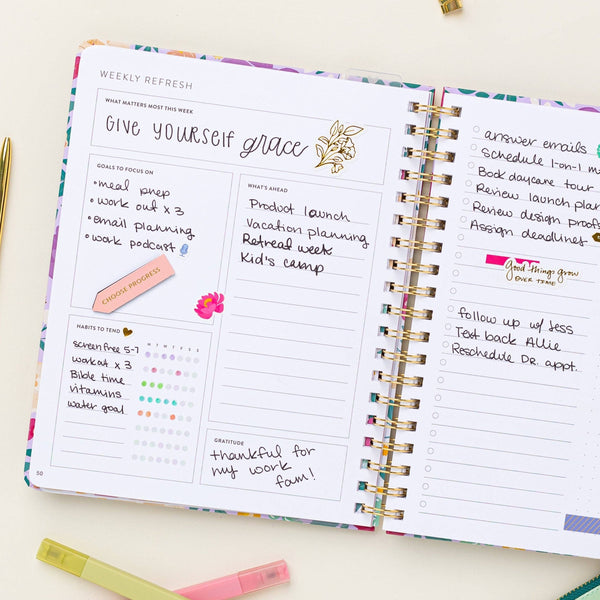 WEEKLY REFRESH
WHAT MATTERS MOST THIS WEEK
GIVE YOURSELF grace
GOALS TO FOCUS ON
• meal prep
• work out x 3
• email planning
• work podcast
CHOOSE PROGRESS
WHAT'S AHEAD
Product launch
Vacation planning
Retreat week
Kid's camp
HABITS TO TEND
M T W T F S S
screen free 5-7
workout x 3
Bible time
vitamins
water goal
GRATITUDE
thankful for
my work
fam!
50
answer emails
Schedule 1-on-1
Book daycare tour
Review launch plan
Review design proofs
Assign deadlines
Good things grow
OVER TIME
follow up w/ Jess
Text back Allie
Reschedule DR. appt.